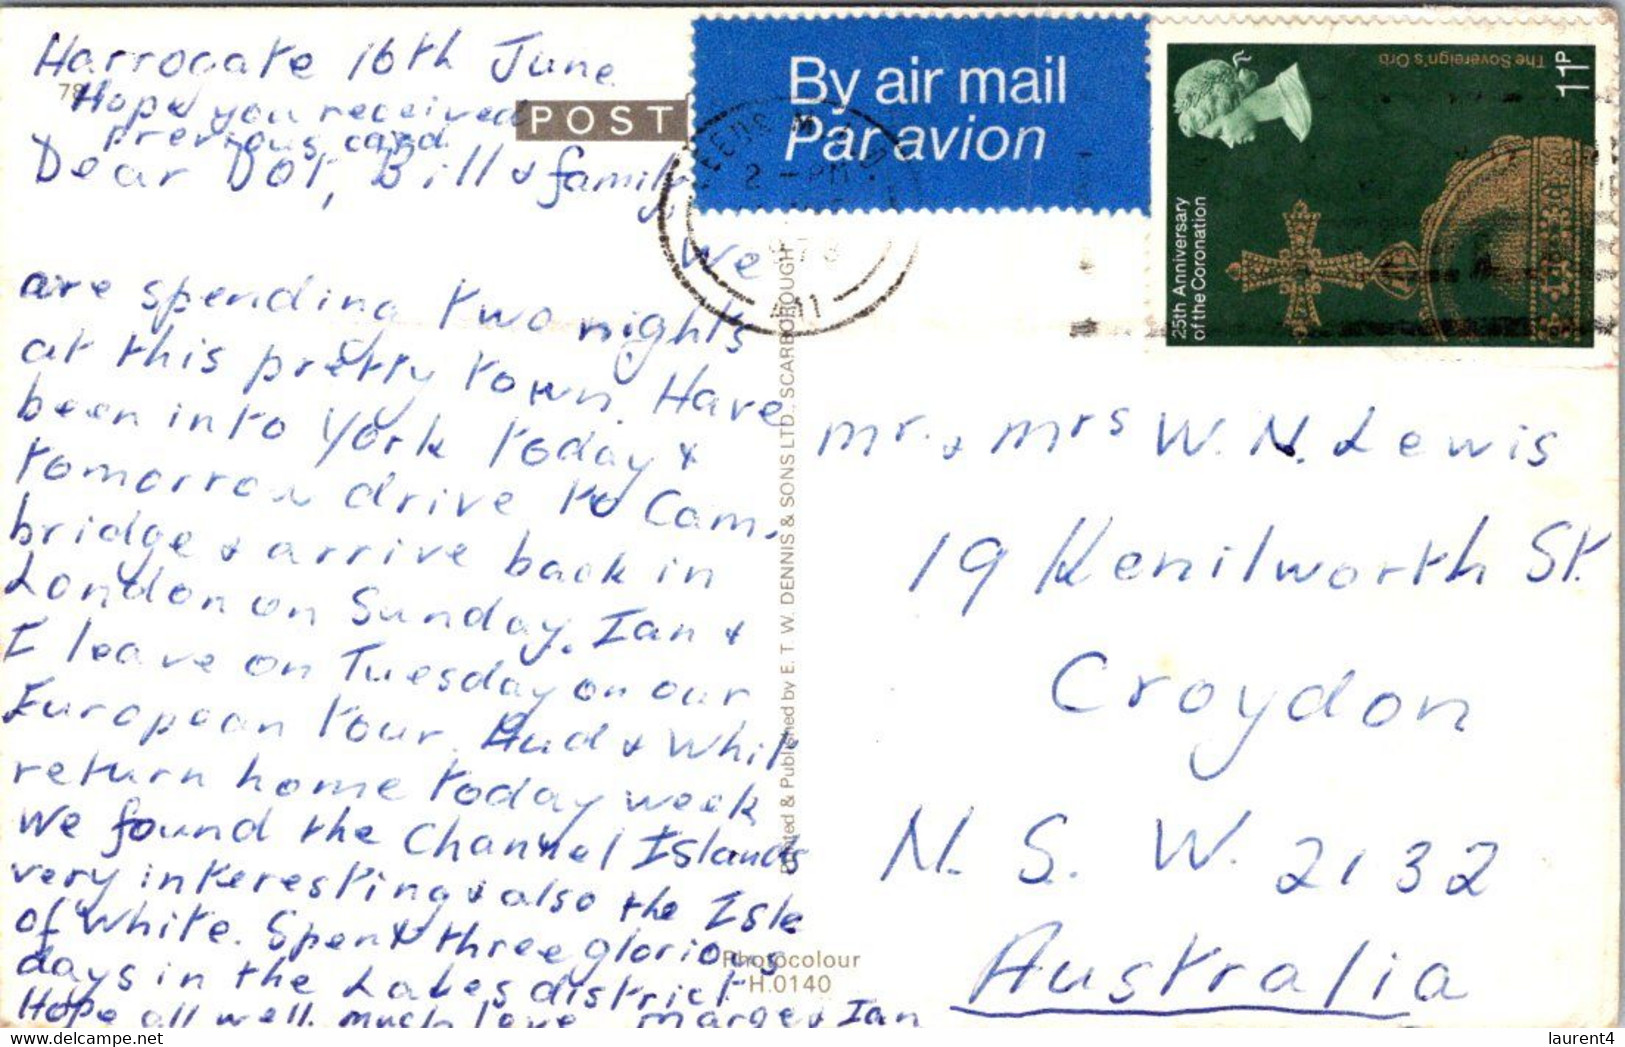 Harrogate 16th June
78
Hope you received
previous card.
Dear Dot, Bill & family,
We
are spending two nights
at this pretty town. Have
been into York today &
tomorrow drive to Cam-
bridge & arrive back in
London on Sunday. Ian &
I leave on Tuesday on our
European tour. Aud & Whit
return home today week
We found the Channel Islands
very interesting & also the Isle
of White. Spent three glorious
days in the Lakes district
Hope all well. much love Marge & Ian
POST
By air mail
Par avion
LEEDS
2 - PM
1978
The Sovereign's Orb
11P
25th Anniversary
of the Coronation
Printed & Published by E. T. W. DENNIS & SONS LTD., SCARBOROUGH
Mr. & Mrs W. N. Lewis
19 Kenilworth St.
Croydon
N. S. W. 2132
Australia
Photocolour
H.0140
laurent4